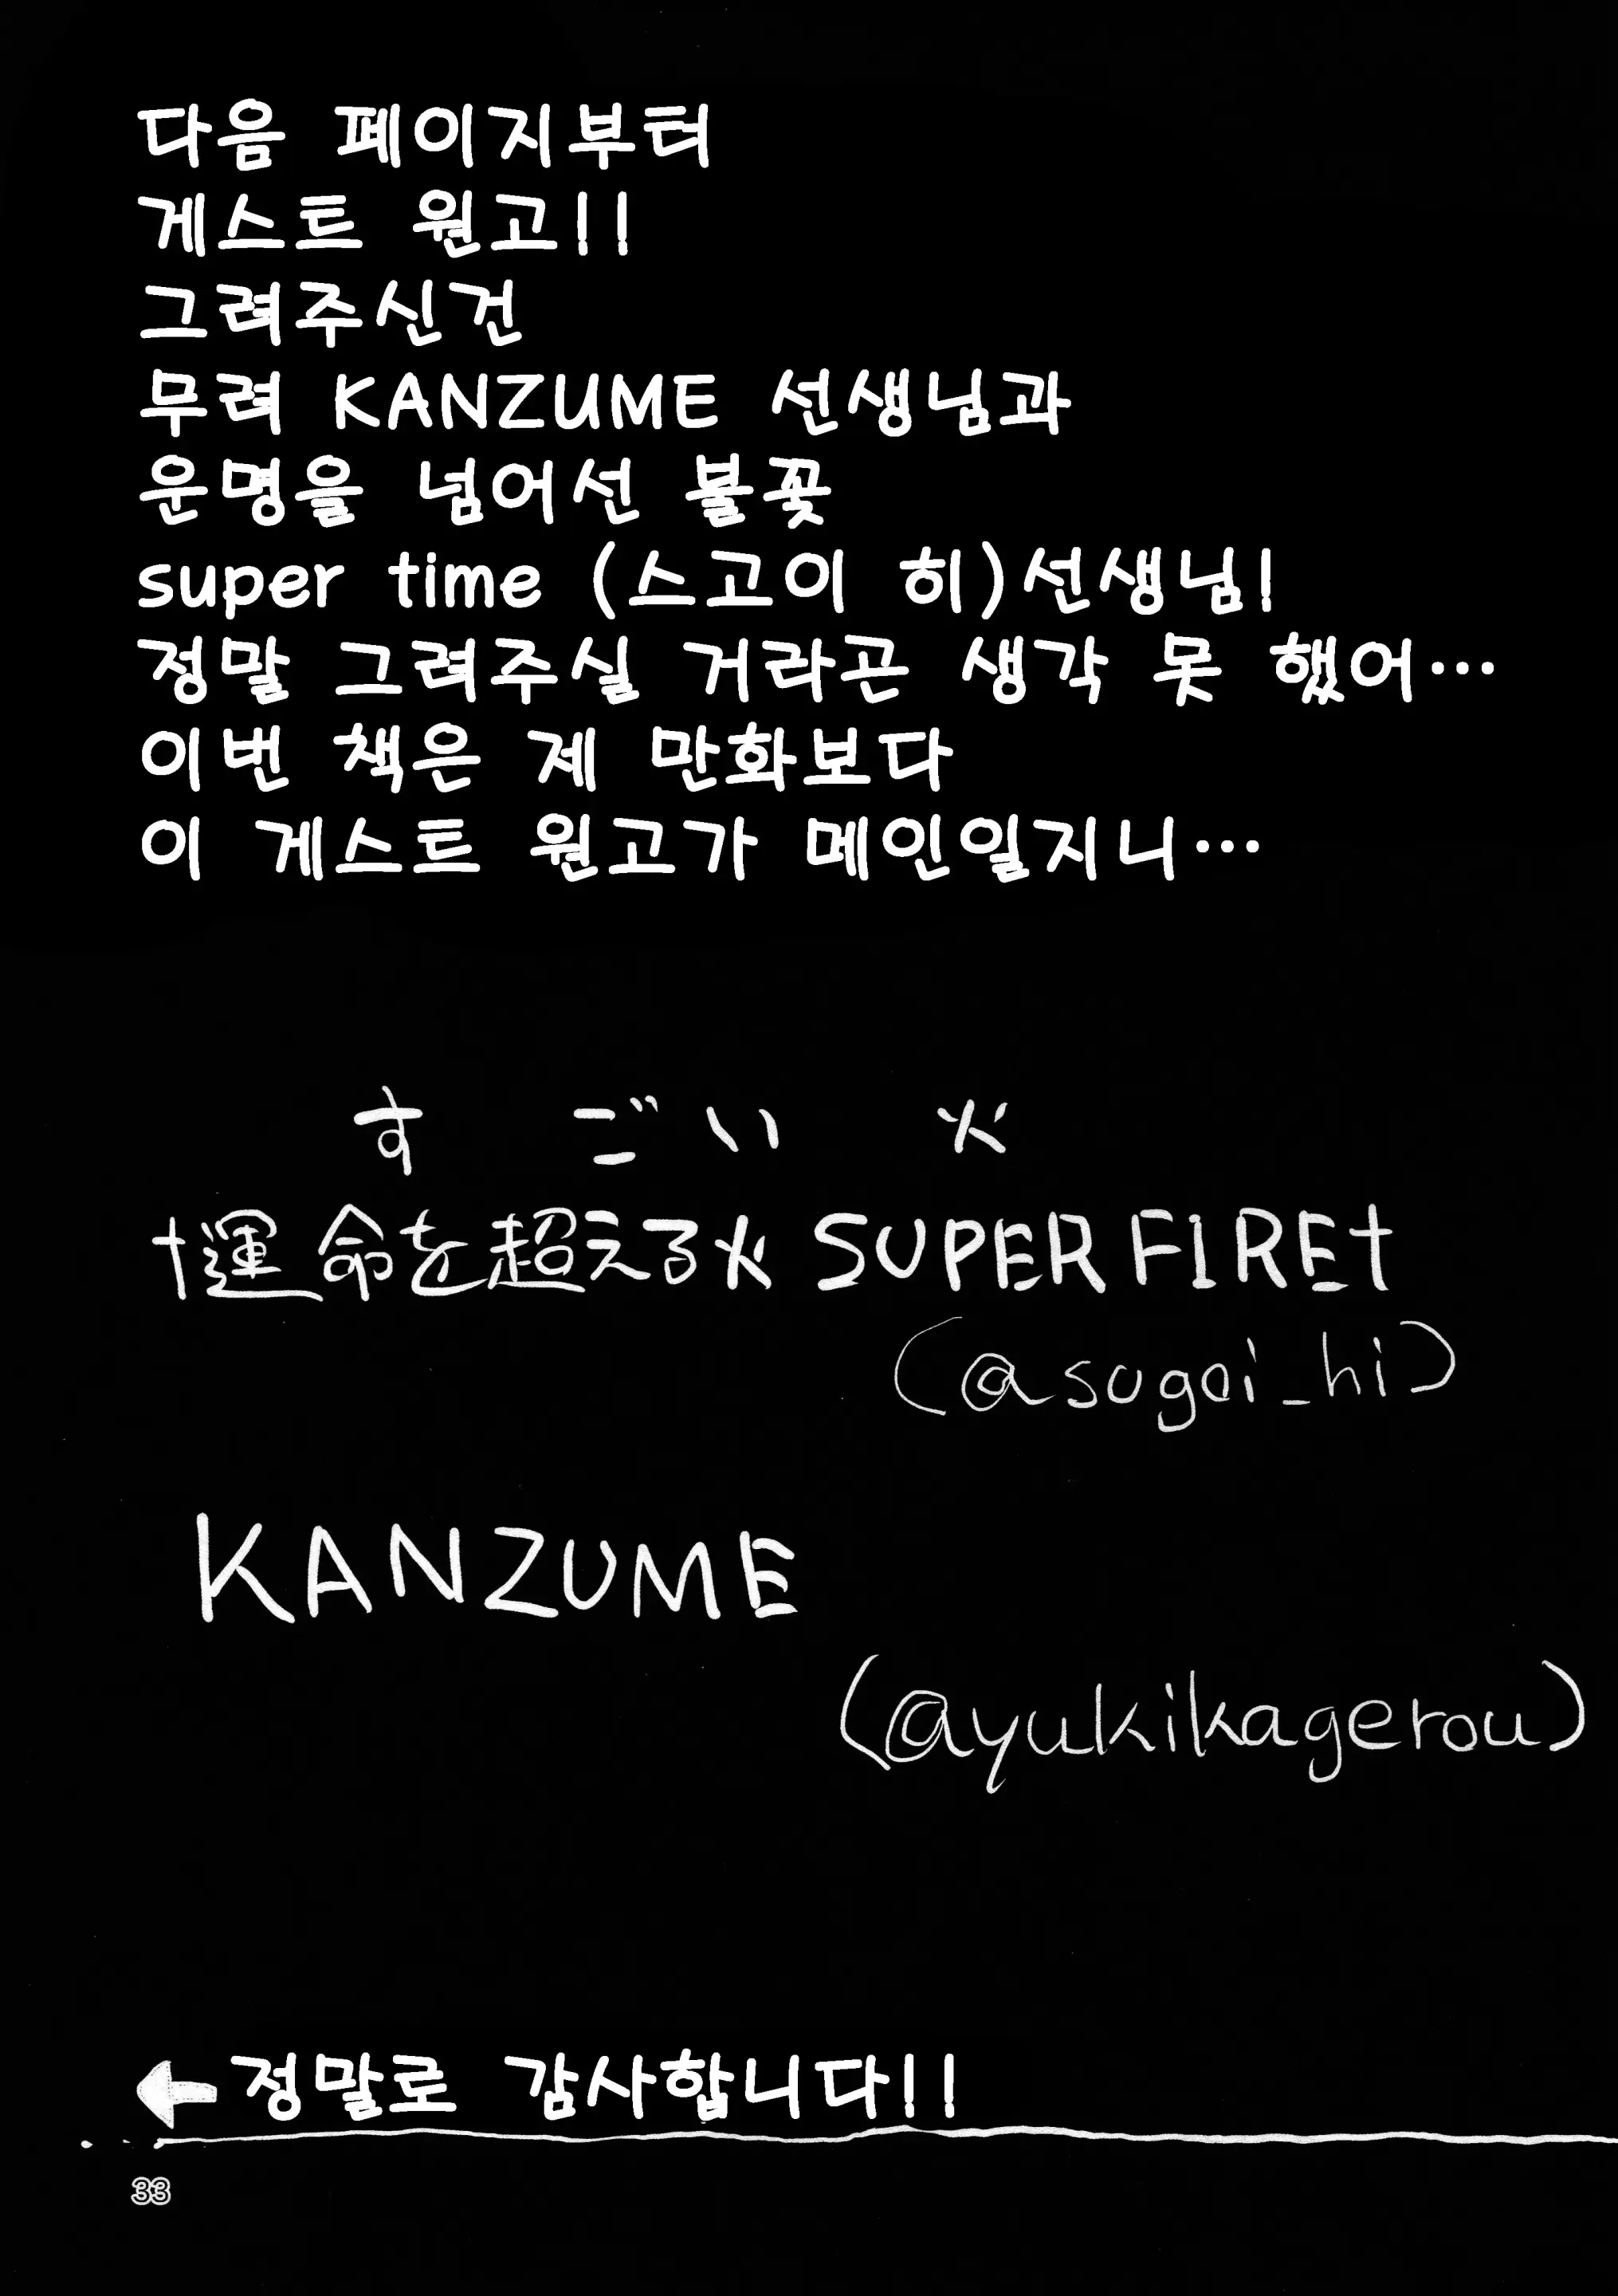 다음 페이지부터
게스트 원고!!
그려주신건
무려 KANZUME 선생님과
운명을 넘어선 불꽃
super time (스고이 히)선생님!
정말 그려주실 거라곤 생각 못 했어…
이번 책은 제 만화보다
이 게스트 원고가 메인일지니…
すごい火
†運命を超える火 SUPER FIRE†
(@sugoi_hi)
KANZUME
(@yukikagerou)
←정말로 감사합니다!!
33